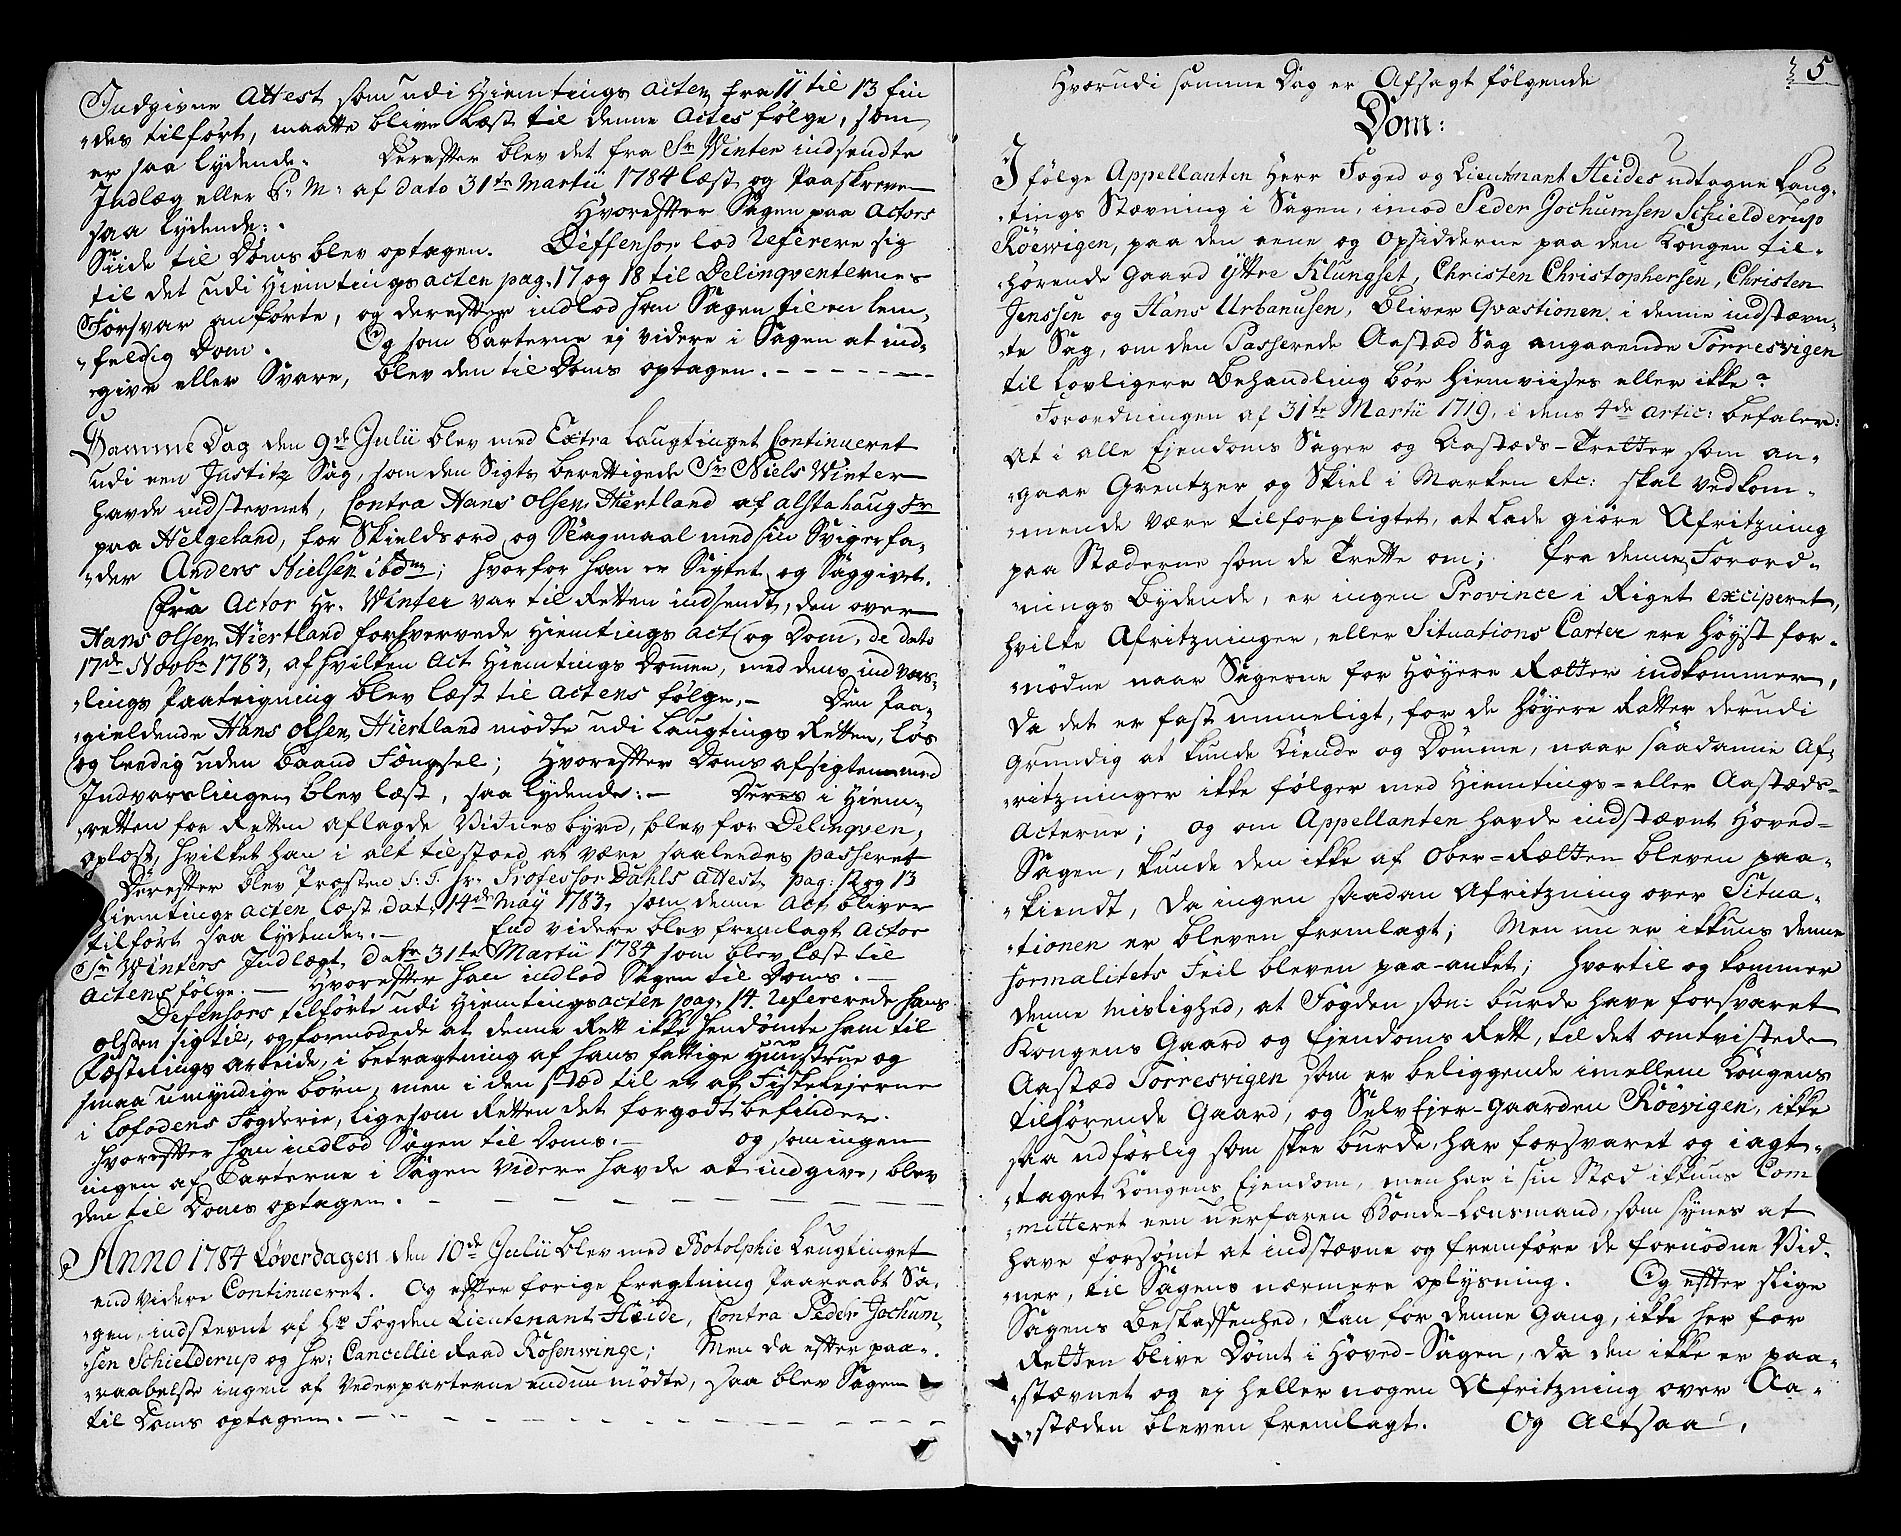 Indgivne Attest som udi Hiemtings Acten fra 11 til 13 fin
„des tilført, maatte blive læst til denne Actes følge, som
er saa lydende: Derefter blev det fra Sr Winter indsendte
Indlæg eller P: M: af dato 31te Martii 1784 læst og Paaskreven
saa lydende: Hvorefter Sagen paa Actors
Siide til Doms blev optagen. Deffensor lod referere sig
til det udi Hiemtingsacten pag. 17 og 18 til Delinqventernes
Forsvar anførte, og derefter indlod han Sagen til en lem„
„feldig Dom. Og som Parterne ej videre i Sagen at ind„
„give eller Svare, blev den til Doms optagen.
Samme Dag den 9de Julii blev med Extra Laugtinget Continueret
udi een Justitz Sag, som den Sigts berettigede Sr Niels Winter
havde indstevnet, Contra Hans Olsen Hiertland af Alstahaug Sr
paa Helgeland, for Skieldsord og Slagmaal med sin Svigerfa„
„der Anders Nielsen ibdm; hvorfor han er Sigtet og Saggivet.
Fra Actor Hr. Winter var til Retten indsendt, den over
Hans Olsen Hiertland forhvervede Hiemtings Act og Dom, de dato
17de Novbr 1783, af hvilken Act Hiemtings Dommen, med dens indvars„
„lings Paateigning blev læst til Actens følge, – Den Paa„
„gieldende Hans Olsen Hiertland mødte udi Laugtings Retten, løs
og leedig uden Baand Fængsel; Hvorefter Doms afsigten med
Indvarslingen blev læst, saa lydende: – Deres i Hiem„
„retten for Retten aflagde Vidnesbyrd, blev for Delinqven„
oplæst, hvilket han i alt tilstoed at være saaleedes passeret
Derefter blev Præsten S: T: Hr. Professor Dahls Attest, pag: 12 og 13
Hiemtings Acten læst, dat: 14de May 1783, som denne Act bliver
tilført saa lydende. – End videre blev fremlagt Actor
Sr Winters Indlægt, dato 31te Martii 1784 som blev læst til
Actens følge. – Hvorefter han indlod Sagen til Doms. –
Defensors tilførte udi Hiemtingsacten pag. 14. refererede Hans
Olsen sig til, og formodede at denne Rett ikke hendømte ham til
Fæstnings arbeide, i betragtning af hans fattige Hunstrue og
smaa umyndige børn, men i den stæd til et af Fiskelejerne
i Lofodens Fogderie, ligesom Retten det forgodt befinder.
Hvorefter han indlod Sagen til Doms. – og som ingen
ingen af Parterne i Sagen videre havde at indgive, blev
den til Doms optagen.
Anno 1784 Løverdagen den 10de Julii blev med Botolphie Laugtinget
end videre Continueret. Og efter forige Eragtning Paaraabt Sa„
„gen, indstevnt af Hr Fogden Lieutenant Heide, Contra Peder Jochum„
„sen Schielderup og Hr: Cancellie Raad Rosenvinge; Men da efter paa„
„raabelse ingen af Vederparterne endnu mødte, saa blev Sagen
til Doms optagen.
5
Hvorudi samme Dag er Afsagt følgende
Dom:
I følge Appellanten Herr Foged og Lieutnant Heides udtagne Laug„
„tings Stævning i Sagen, imod Peder Jochumsen Schielderup
Röevigen, paa den eene og Opsidderne paa den Kongen til„
„hørende Gaard Yttre Klungset, Christen Christophersen, Christen
Jenssen og Hans Urbanusen, bliver Qvæstionen i denne indstævn„
„te Sag, om den Passerede Aastæd Sag angaaende Torresvigen
til lovligere Behandling bør hiemviises eller ikke?
Forordningen af 31te Martii 1719, i dens 4de Artic: befaler:
At i alle Ejendoms Sager og Aastæds-Tretter som an„
„gaar Grentzer og Skiel i Marken etc: skal vedkom„
„mende være tilforpligtet, at lade giøre Afritzning
paa Stæderne som de Trette om; fra denne Forord„
„nings Bydende, er ingen Province i Riget exciperet,
hvilke Afritzninger, eller Situations Carter ere høyst for„
„nødne naar Sagerne for Høyere Retter indkommer,
da det er fast umueligt, for de høyere Retter derudi
grundig at kunde kiende og Dømme, naar saadanne Af„
„ritzninger ikke følger med Hiemtings- eller Aastæds-
Acterne; og om Appellanten havde indstævnt Hoved-
Sagen, kunde den ikke af Ober-Retten bleven paa„
„kiendt, da ingen saadan Afritzning over Situa„
„tionen er bleven fremlagt; Men nu er ikkuns denne
formalitets Feil bleven paa-anket; hvortil og kommer
denne mislighed, at Fogden som burde have forsvaret
Kongens Gaard og Ejendoms Rett, til det omtvistede
Aastæd Torresvigen som er beliggende imellem Kongens
tilhørende Gaard, og Selv Ejer-Gaarden Röevigen, ikke
saa udførlig som skee burde, har forsvaret og iagt„
„taget Kongens Ejendom, men har i sin Stæd ikkuns Com
„mitteret een uerfaren Bonde-Lensmand, som synes at
have forsømt at indstævne og fremføre de fornødne Vid„
„ner, til Sagens nærmere oplysning. Og efter slige
Sagens Beskaffenhed, kan for denne Gang, ikke her for
Retten blive Dømt i Hoved-Sagen, da den ikke er paa„
„stævnet og ej heller nogen Afritzning over Aa„
„stæden bleven fremlagt. Og Altsaa,